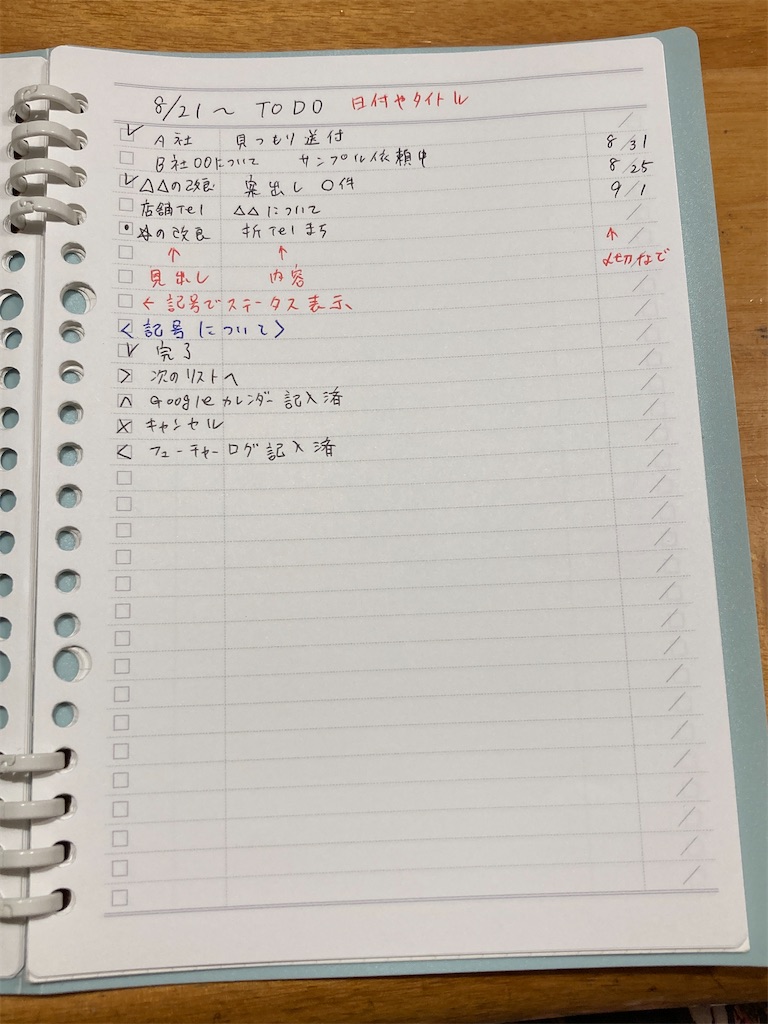 8/21～ TODO 日付やタイトル
A社 見つもり送付 8/31
B社〇〇について サンプル依頼中 8/25
△△の改良 案出し 〇件 9/1
店舗Tel △△について
☆の改良 折Telまち
↑ ↑ ↑
見出し 内容 〆切など
← 記号でステータス表示
<記号について>
∨ 完了
> 次のリストへ
∧ Googleカレンダー記入済
× キャンセル
< フューチャーログ記入済